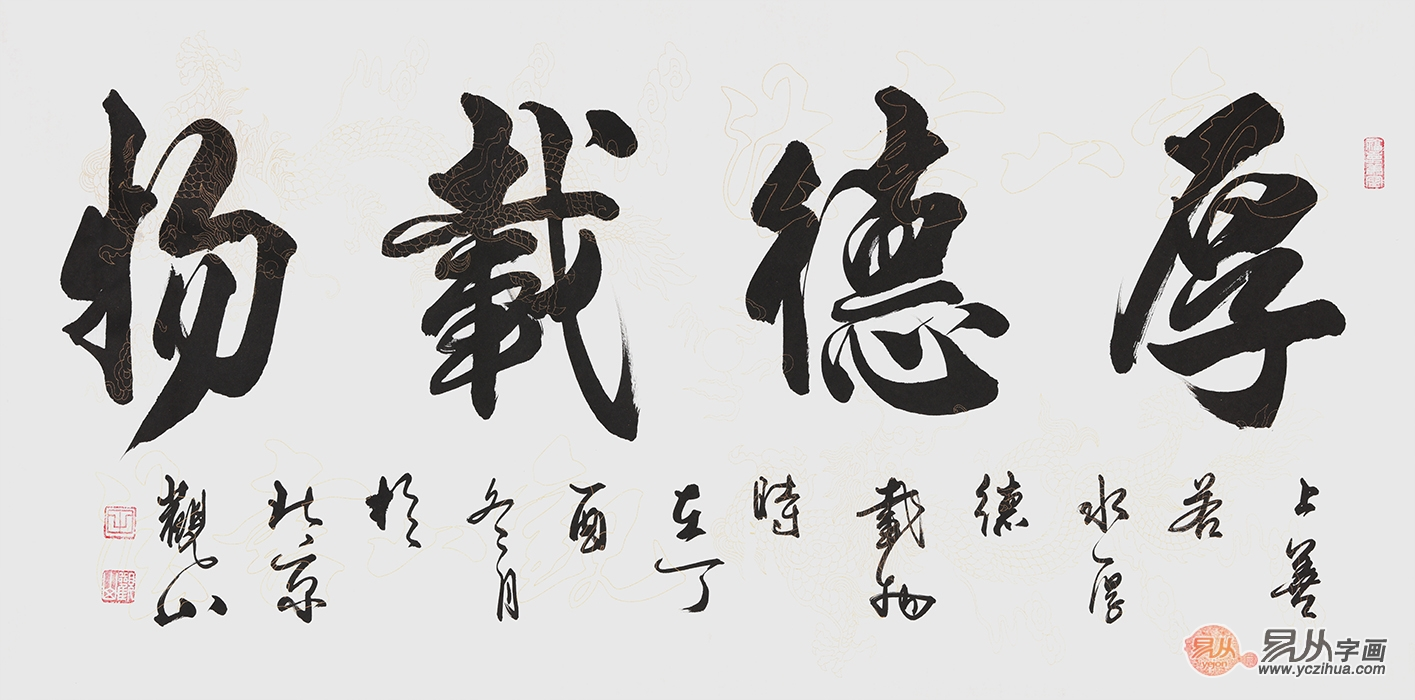 厚德載物
上善
若
水厚
德
載物
時
在丁
酉
冬月
於
北京
觀山
易从字画
www.yczihua.com
易从